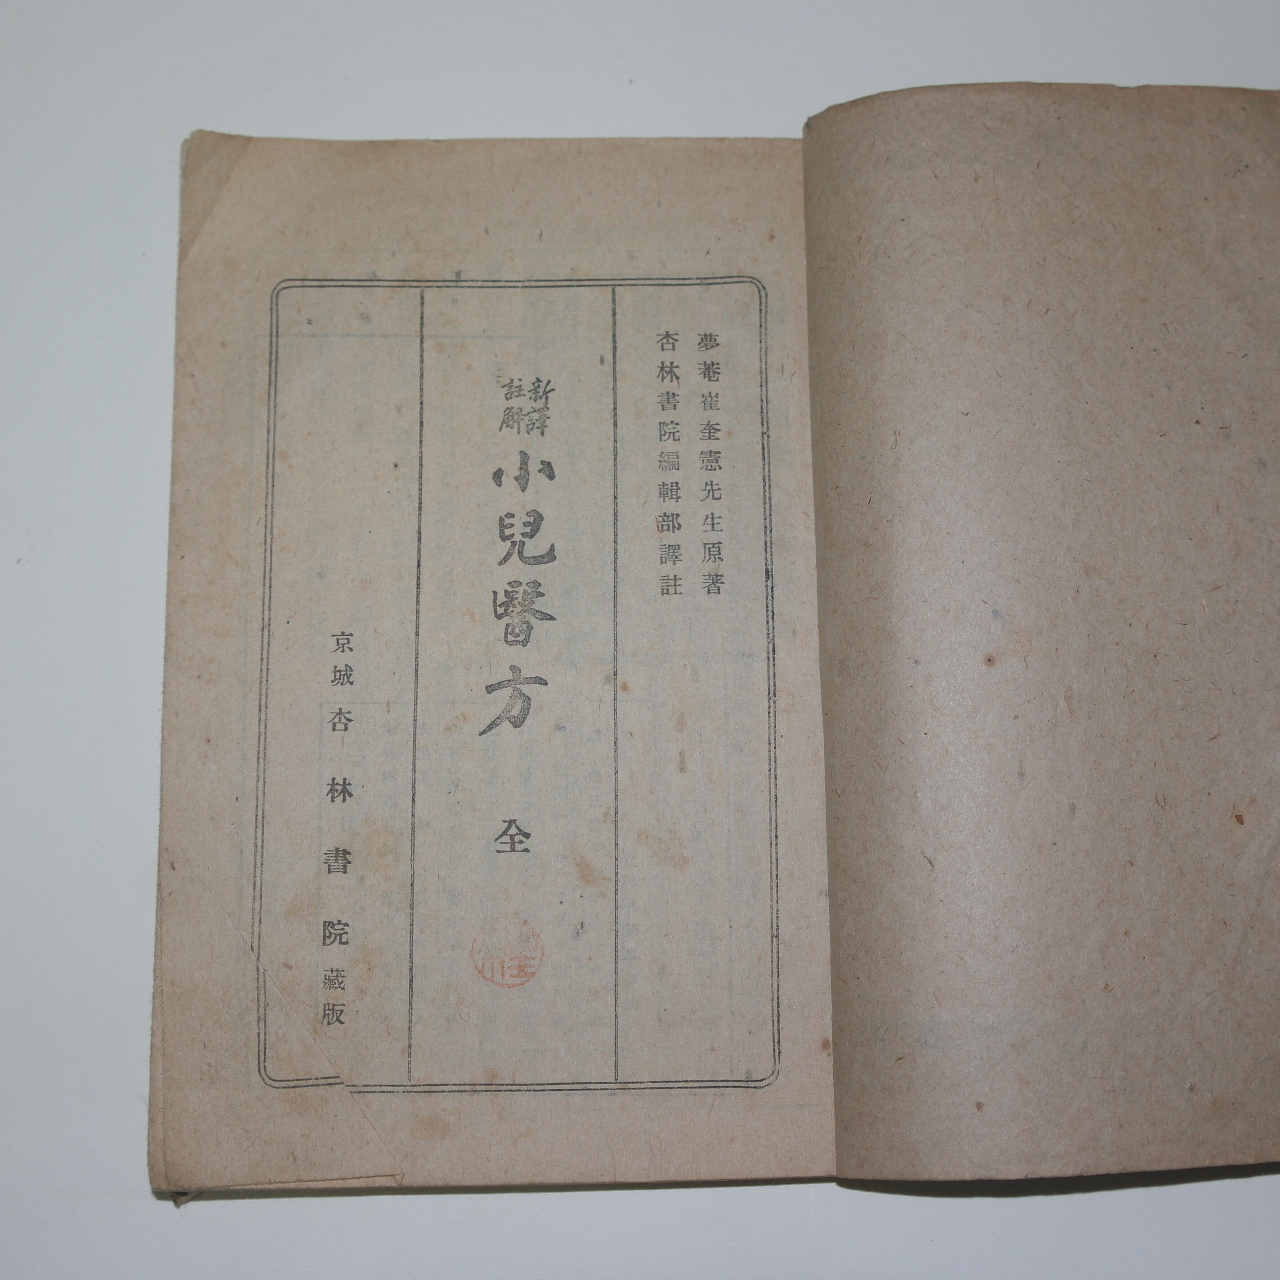 夢菴崔奎憲先生原著
杏林書院編輯部譯註
新譯
註解
小兒醫方 全
京城 杏林書院 藏版